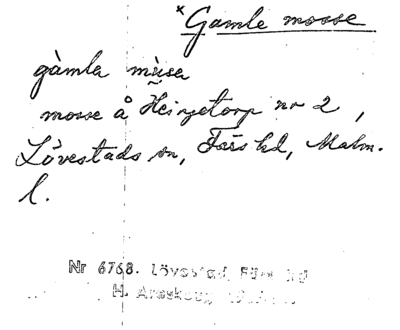 *Gamle mosse
gàmla mùsa
mosse å Heingetorp nr 2,
Lövestads sn, Färs hd, Malm.
l.
Nr 6768. Lövestad, Färs hd
H. Areskoug